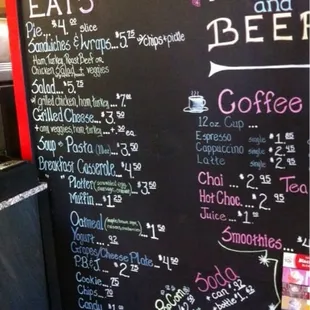 EATS
Pie $4.00 slice
Sandwiches & Wraps $5.75 w/chips & pickle
Ham, Turkey, Roast Beef or
Chicken Salad + veggies
Salad $5.75
w/ grilled chicken, ham, turkey $7.00
Grilled Cheese $3.50
+ any veggies, ham, turkey
Soup or Pasta $3.50
Breakfast Casserole $4.50
Platter $3.50
Muffin $1.25
Oatmeal $1.50
Yogurt .92
Grapes/Cheese Plate $4.50
P.B.&J. $2.75
Cookie .75
Chips .79
Candy
and
BEER
Coffee
12 oz. Cup
Espresso single $1.85
Cappuccino single
Latte single
Chai $2.95
Tea
Hot Choc. $2.00
Juice $1.00
Smoothies $4
Soda
can
bottle